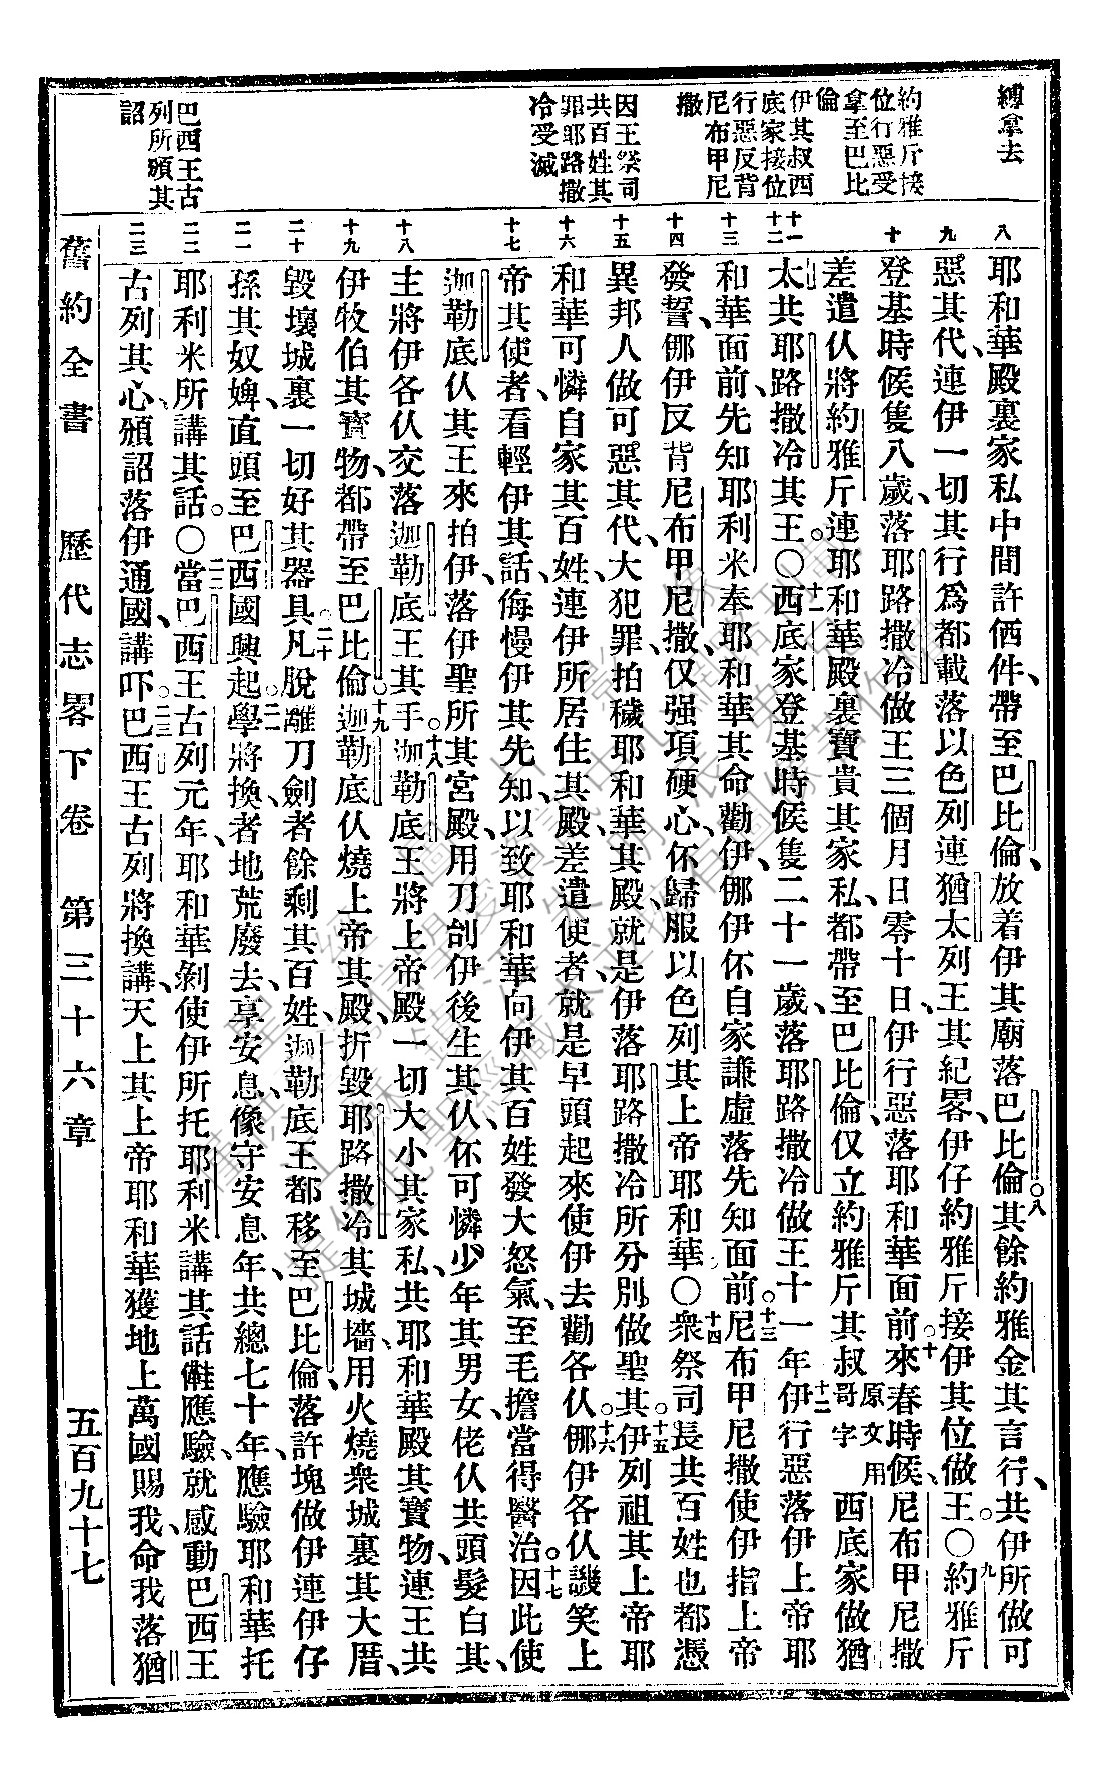 縛拿去
約雅斤接
位行惡受
拿至巴比
倫
伊其叔西
底家接位
行惡反背
尼布甲尼
撒
因王祭司
共百姓其
罪耶路撒
冷受滅
巴西王古
列所頒其
詔
八
九
十
十一
十二
十三
十四
十五
十六
十七
十八
十九
二十
二一
二二
二三
耶和華殿裏家私中間許㑚件、帶至巴比倫、放着伊其廟落巴比倫。○八其餘約雅金其言行、共伊所做可
惡其代、連伊一切其行爲都載落以色列連猶太列王其紀畧、伊仔約雅斤接伊其位做王。○九約雅斤
登基時候隻八歲、落耶路撒冷做王三個月日零十日、伊行惡落耶和華面前。○十來春時候、尼布甲尼撒
差遣仈將約雅斤連耶和華殿裏寶貴其家私、都帶至巴比倫、仅立約雅斤其叔原文用哥字西底家做猶
太共耶路撒冷其王。○十一西底家登基時候隻二十一歲、落耶路撒冷做王十一年、十二伊行惡落伊上帝耶
和華面前、先知耶利米奉耶和華其命勸伊、伊伓自家謙虛落先知面前。十三尼布甲尼撒使伊指上帝
發誓、伊反背尼布甲尼撒、仅强項硬心、伓歸服以色列其上帝耶和華○十四衆祭司長共百姓也都憑
異邦人做可惡其代、大犯罪、拍穢耶和華其殿、就是伊落耶路撒冷所分別做聖其。十五伊列祖其上帝耶
和華可憐自家其百姓、連伊所居住其殿、差遣使者、就是早頭起來使伊去勸各仈、十六伊各仈譏笑上
帝其使者、看輕伊其話、侮慢伊其先知、以致耶和華向伊其百姓發大怒氣、至毛擔當得醫治。十七因此使
迦勒底仈其王來拍伊、落伊聖所其宮殿、用刀刣伊後生其仈、伓可憐少年其男女、佬仈共頭髮白其、
主將伊各仈交落迦勒底王其手。十八迦勒底王將上帝殿一切大小其家私、共耶和華殿其寶物、連王共
伊牧伯其寶物、都帶至巴比倫。十九迦勒底仈燒上帝其殿、折毀耶路撒冷其城墻、用火燒衆城裏其大厝、
毀壞城裏一切好其器具、二十凡脫離刀劍者餘剩其百姓、迦勒底王都移至巴比倫、落許塊做伊連伊仔
孫其奴婢、直頭至巴西國興起。二一學將換者地荒廢去、享安息、像守安息年、共總七十年、應驗耶和華托
耶利米所講其話。○二二當巴西王古列元年、耶和華剝使伊所托耶利米講其話應驗、就感動巴西王
古列其心、頒詔落伊通國、講吓、二三巴西王古列將換講、天上其上帝耶和華獲地上萬國賜我、命我落猶
舊約全書　歷代志畧下卷　第三十六章　五百九十七